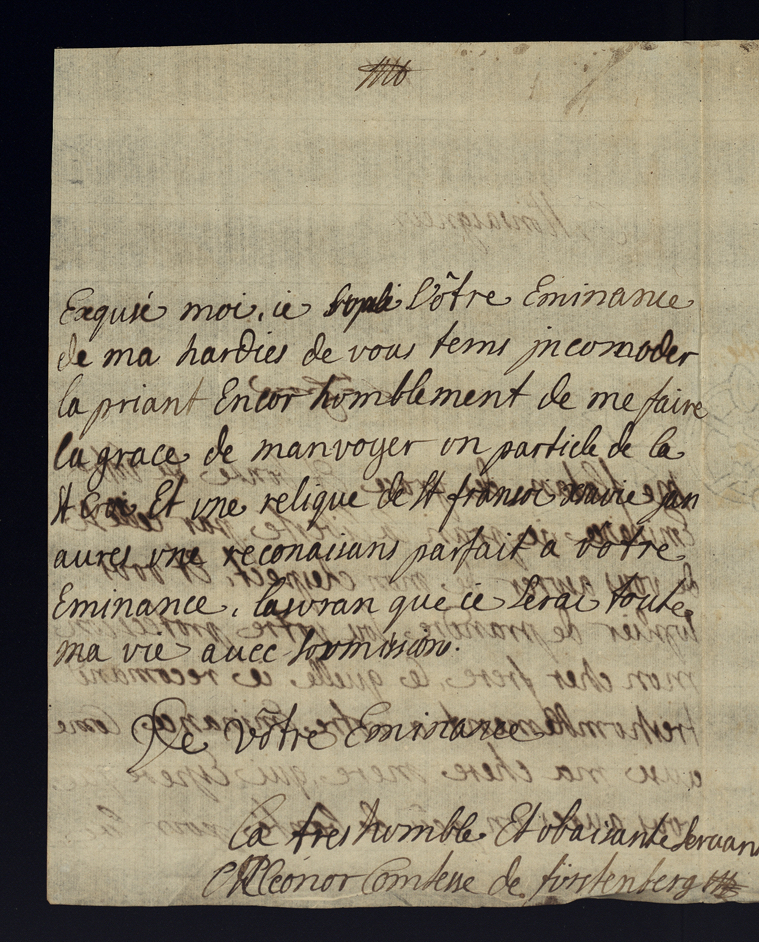 Exqusé moi, ie supli Vôtre Eminance
de ma hardies de vous tems jncomoder
la priant Encor homblement de me faire
la grace de manvoyer un particle de la
St Croi Et vne relique de St fransoi xavie jan
aures vne reconaisans parfait a votre
Eminance, lasuran que ie serai toute
ma vie auec soumision.
De vôtre Eminance
La tres homble Et obaisante seruan
Eleonor Comtesse de fürstenberg